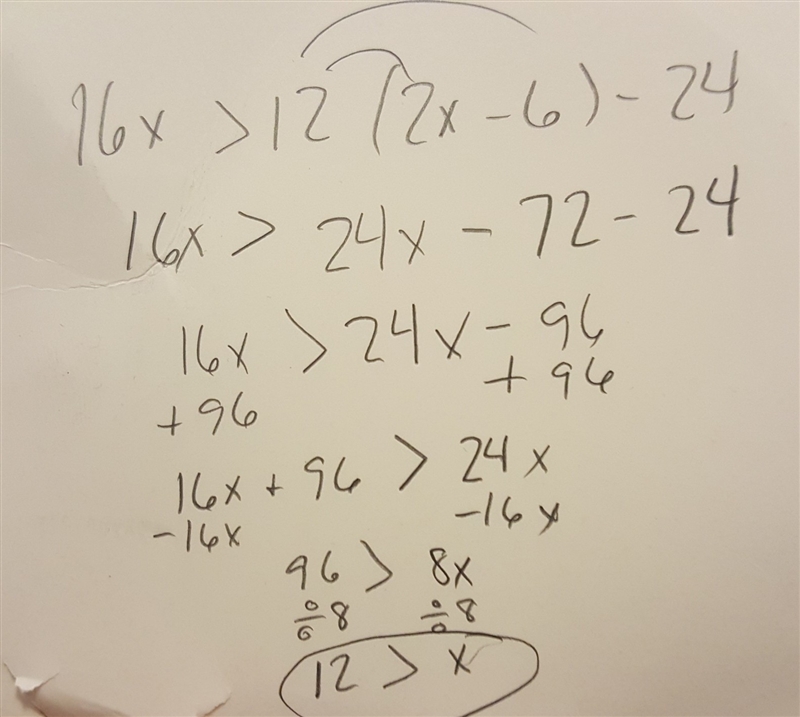 16x > 12 (2x - 6) - 24
16x > 24x - 72 - 24
16x > 24x - 96
+ 96 + 96
16x + 96 > 24x
- 16x - 16x
96 > 8x
÷ 8 ÷ 8
12 > x